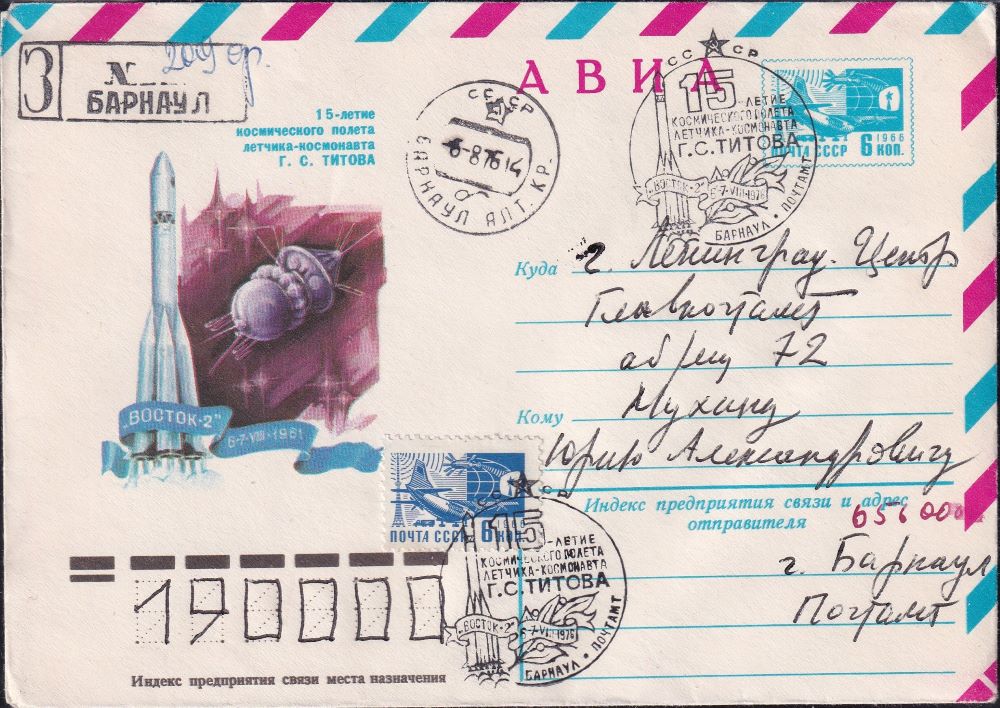 З
№ 209 ор.
БАРНАУЛ
АВИА
15-летие
космического полета
летчика-космонавта
Г. С. ТИТОВА
„ВОСТОК-2"
6-7-VIII-1961
СССР
6-8 76 14
БАРНАУЛ АЛТ. КР.
а
СССР
15-ЛЕТИЕ
КОСМИЧЕСКОГО ПОЛЕТА
ЛЕТЧИКА-КОСМОНАВТА
Г.С.ТИТОВА
„ВОСТОК-2" 6-7-VIII-1976
БАРНАУЛ • ПОЧТАМТ
1966
ПОЧТА СССР 6 КОП.
Куда г. Ленинград-Центр
Главпочтамт
аб/ящ 72
Кому Мухину
Юрию Александровичу
Индекс предприятия связи и адрес
отправителя 656000
г. Барнаул
Почтамт
1966
ПОЧТА СССР 6 КОП.
СССР
15-ЛЕТИЕ
КОСМИЧЕСКОГО ПОЛЕТА
ЛЕТЧИКА-КОСМОНАВТА
Г.С.ТИТОВА
„ВОСТОК-2" 6-7-VIII-1976
БАРНАУЛ • ПОЧТАМТ
190000
Индекс предприятия связи места назначения